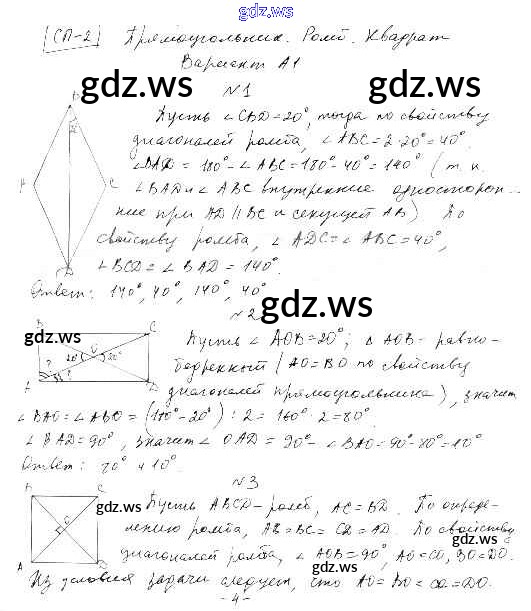 gdz.ws
СП-2 Прямоугольник. Ромб. Квадрат
Вариант А1
gdz.ws gdz.ws
№1
Пусть ∠CBD=20°, тогда по свойству
диагоналей ромба, ∠ABC=2·20°=40°.
= 180°-∠ABC=180°-40°=140° (т.к.
∠BAD и ∠ABC внутренние односторон-
ние при AD∥BC и секущей AB) По
свойству ромба, ∠ADC=∠ABC=40°,
∠BCD=∠BAD=140°.
Ответ: 140°, 40°, 140°, 40°
gdz.ws gdz.ws
№2
B C
gdz.ws
20° O 20°
? ?
A D
Пусть ∠AOB=20°; △AOB- равно-
бедренный (AO=BO по свойству
диагоналей прямоугольника), значит
∠BAO=∠ABO=(180°-20°):2=160°:2=80°.
∠BAD=90°, значит ∠OAD=90°-∠BAO=90°-80°=10°
Ответ: 80° и 10°.
gdz.ws
№3
B C
O
A D
gdz.ws
Пусть ABCD-ромб, AC=BD. По опреде-
лению ромба, AB=BC=CD=AD. По свойству
gdz.ws
диагоналей ромба, ∠AOB=90°, AO=CO, BO=DO.
gdz.ws
Из условия задачи следует, что AO=BO=CO=DO.
-4-
gdz.ws